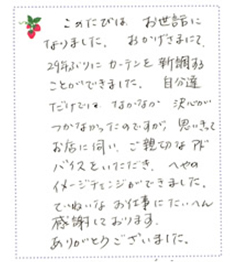 このたびは、お世話に
なりました。おかげさまにて、
29年ぶりにカーテンを新調する
ことができました。自分達
だけでは なかなか 決心が
つかなかったのですが、思いきって
お店に伺い、ご親切なアド
バイスをいただき、へやの
イメージチェンジができました。
ていねいなお仕事にたいへん
感謝しております。
ありがとうございました。